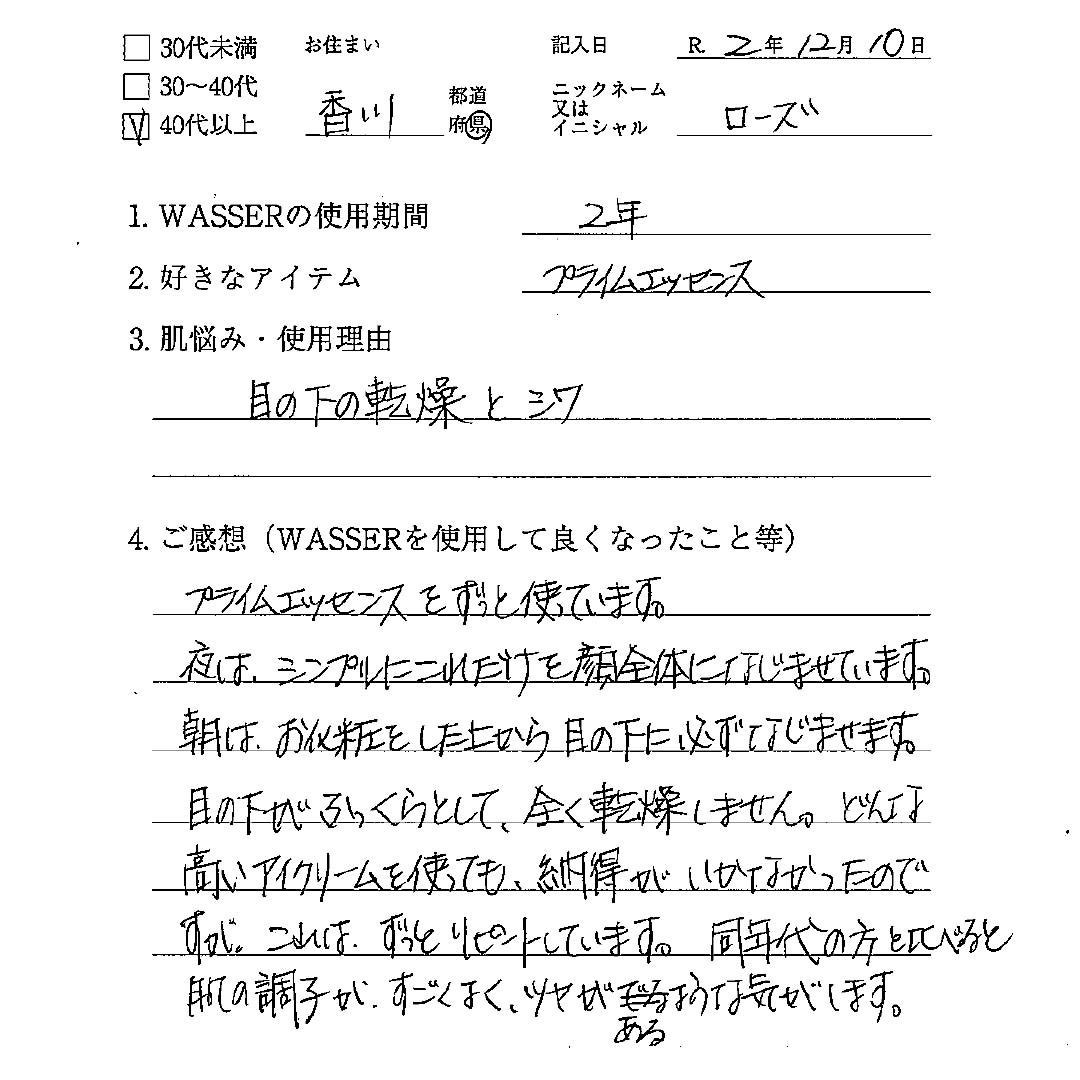 □ 30代未満 お住まい 記入日 R. 2年 12月 10日
□ 30〜40代 香川 都道府県 ニックネーム又はイニシャル ローズ
☑ 40代以上
1. WASSERの使用期間 2年
2. 好きなアイテム プライムエッセンス
3. 肌悩み・使用理由
目の下の乾燥とシワ
4. ご感想（WASSERを使用して良くなったこと等）
プライムエッセンスをずっと使っています。
夜は、シンプルにこれだけを顔全体になじませています。
朝は、お化粧をした上から目の下に必ずなじませます。
目の下がふっくらとして、全く乾燥しません。どんな
高いアイクリームを使っても、納得がいかなかったので
すが、これは、ずっとリピートしています。同年代の方と比べると
肌の調子が、すごくよく、ツヤがあるような気がします。